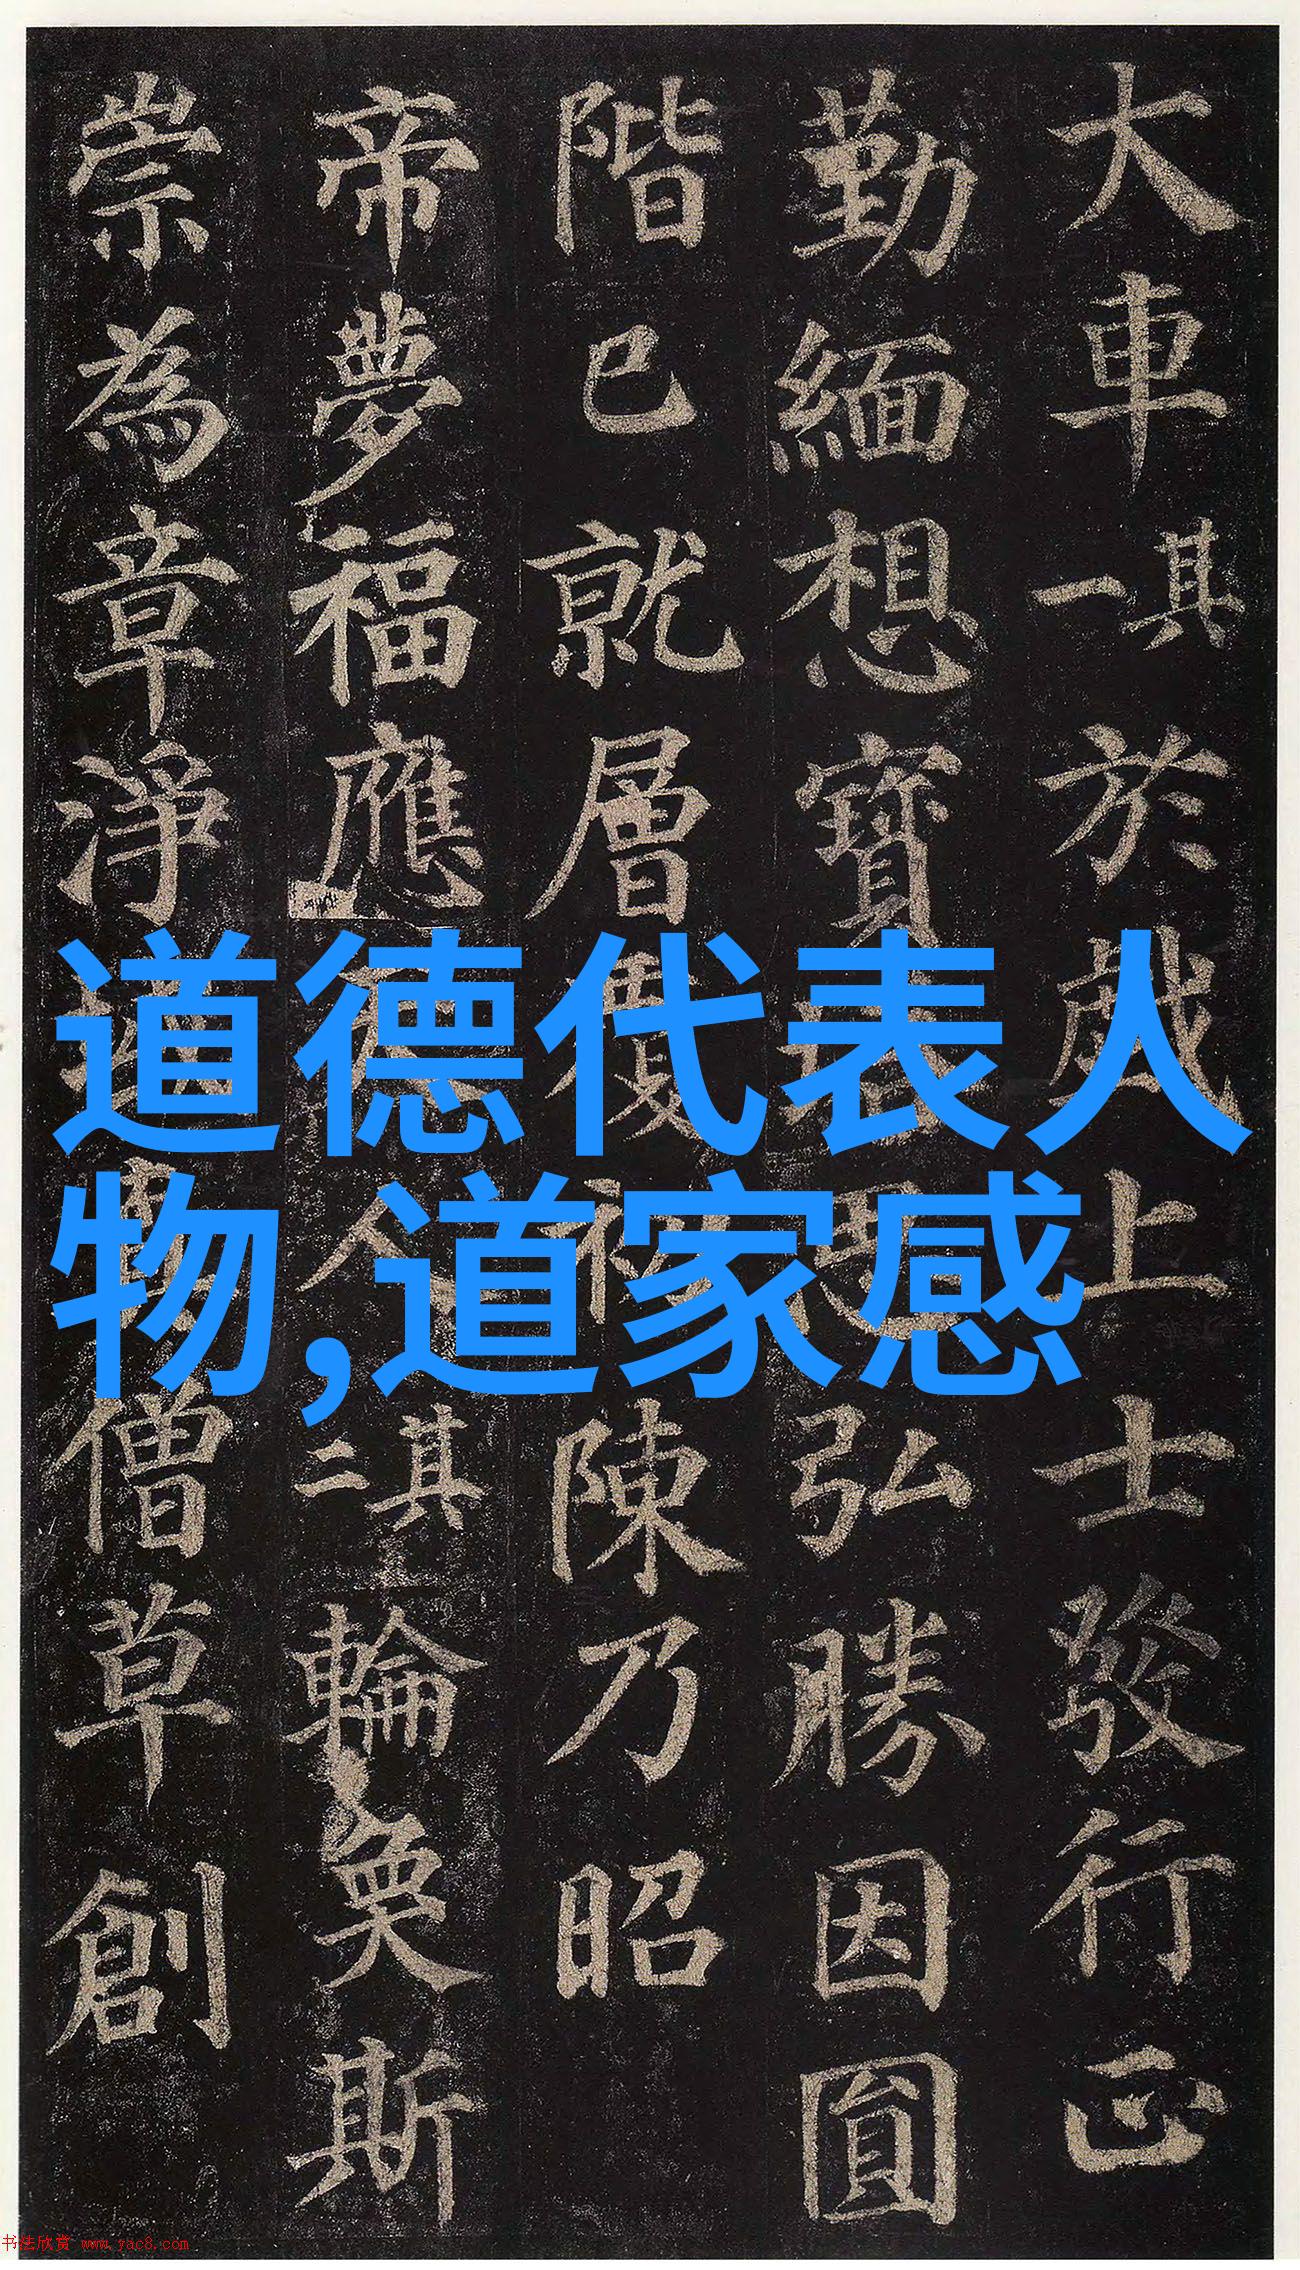 大車其一於戲上士發行正
勤緬想寶塔思弘勝因圓
階已就層覆初陳乃昭
帝夢福應天人其二輪奐斯
崇為章淨域真僧草創
道德代表人
物,道家感
书法欣赏 www.yac8.com